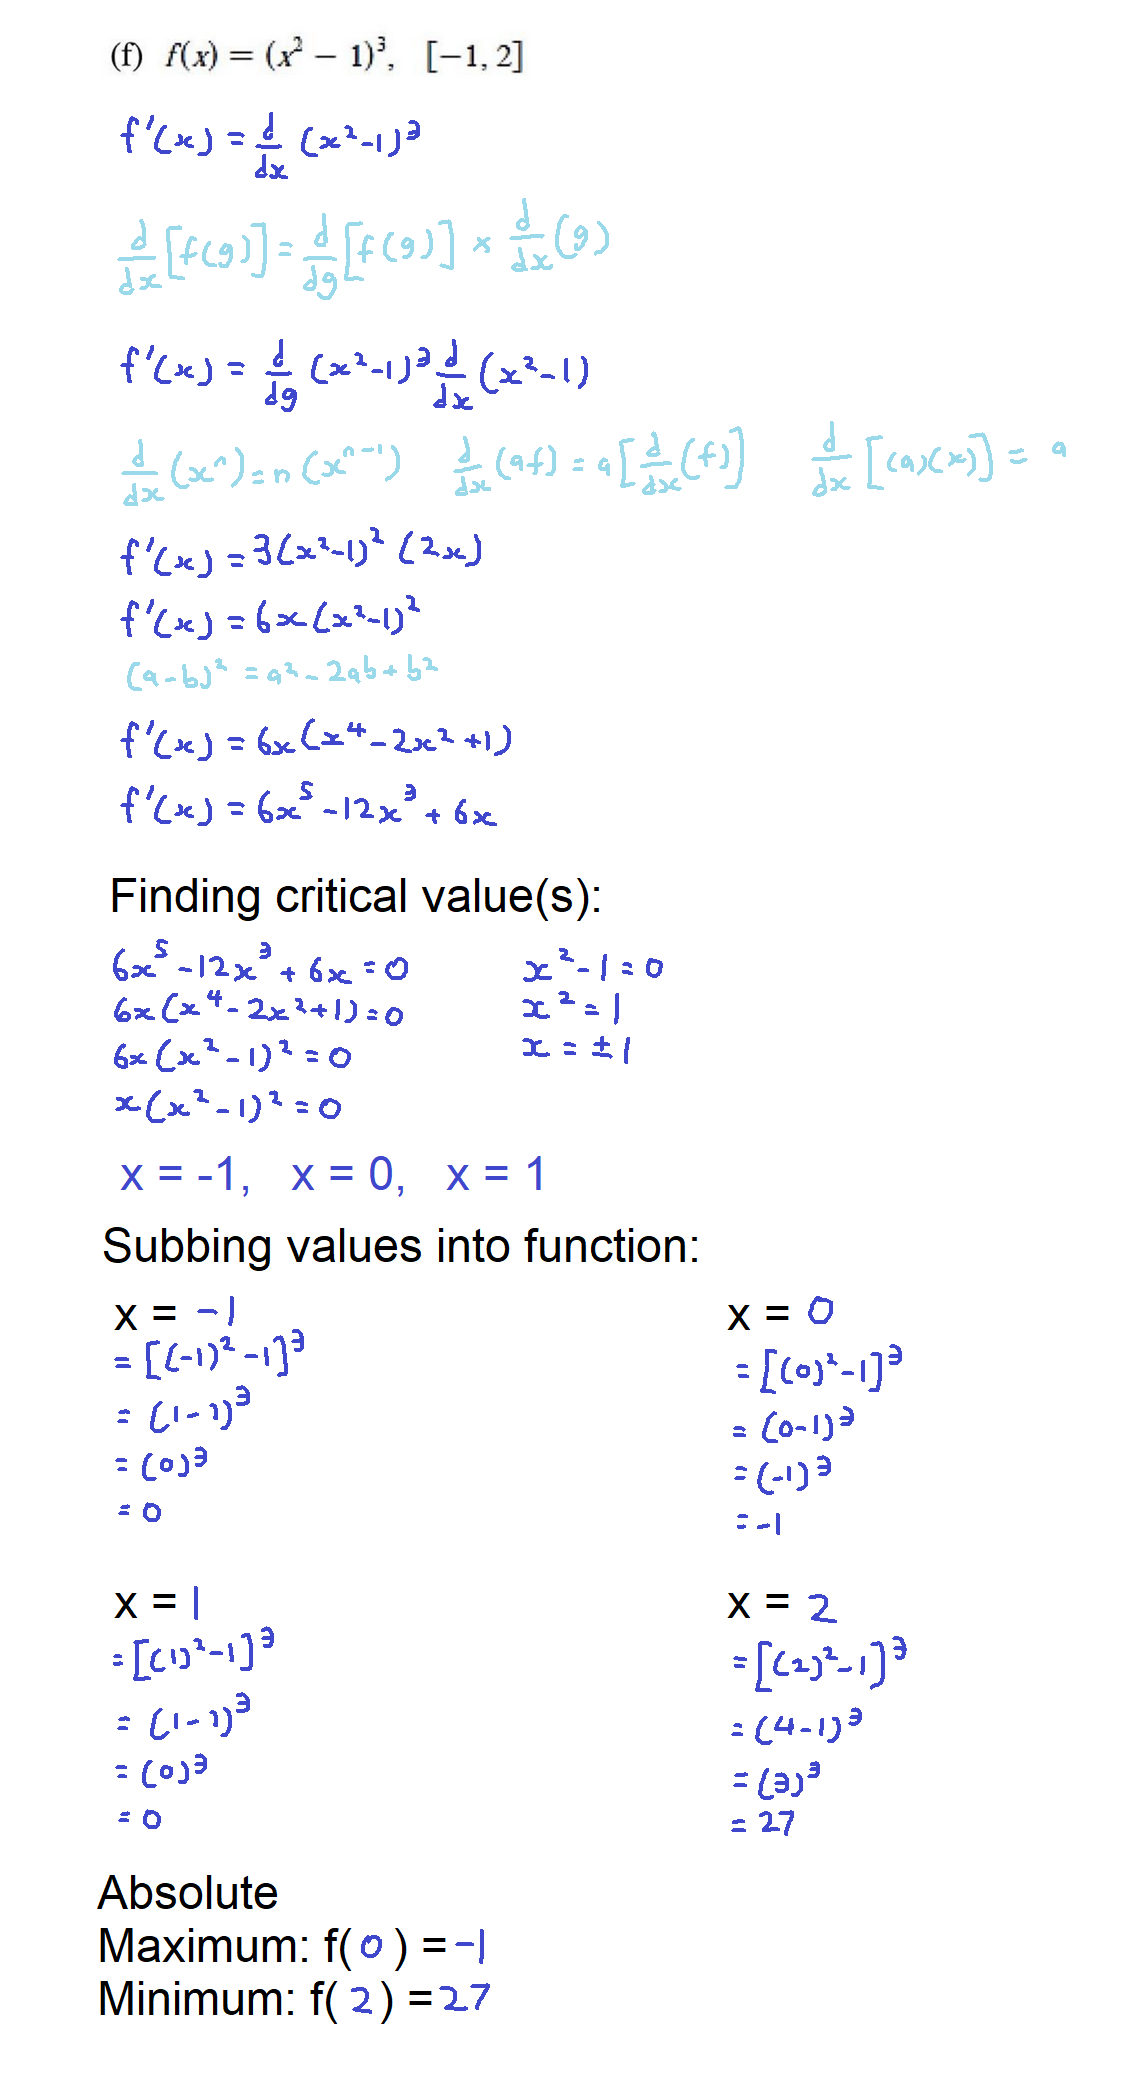 (f) f(x) = (x² − 1)³, [−1, 2]
f'(x) = d/dx (x²-1)³
d/dx [f(g)] = d/dg [f(g)] × d/dx (g)
f'(x) = d/dg (x²-1)³ d/dx (x²-1)
d/dx (xⁿ) = n(xⁿ⁻¹) d/dx (af) = a[d/dx (f)] d/dx [(a)(x)] = a
f'(x) = 3(x²-1)² (2x)
f'(x) = 6x(x²-1)²
(a-b)² = a² - 2ab + b²
f'(x) = 6x(x⁴ - 2x² + 1)
f'(x) = 6x⁵ - 12x³ + 6x
Finding critical value(s):
6x⁵ - 12x³ + 6x = 0
6x(x⁴ - 2x² + 1) = 0
6x(x² - 1)² = 0
x(x² - 1)² = 0
x² - 1 = 0
x² = 1
x = ± 1
x = -1, x = 0, x = 1
Subbing values into function:
x = -1
= [(-1)² - 1]³
= (1 - 1)³
= (0)³
= 0
x = 0
= [(0)² - 1]³
= (0-1)³
= (-1)³
= -1
x = 1
= [(1)² - 1]³
= (1 - 1)³
= (0)³
= 0
x = 2
= [(2)² - 1]³
= (4 - 1)³
= (3)³
= 27
Absolute
Maximum: f( 0 ) = -1
Minimum: f( 2 ) = 27